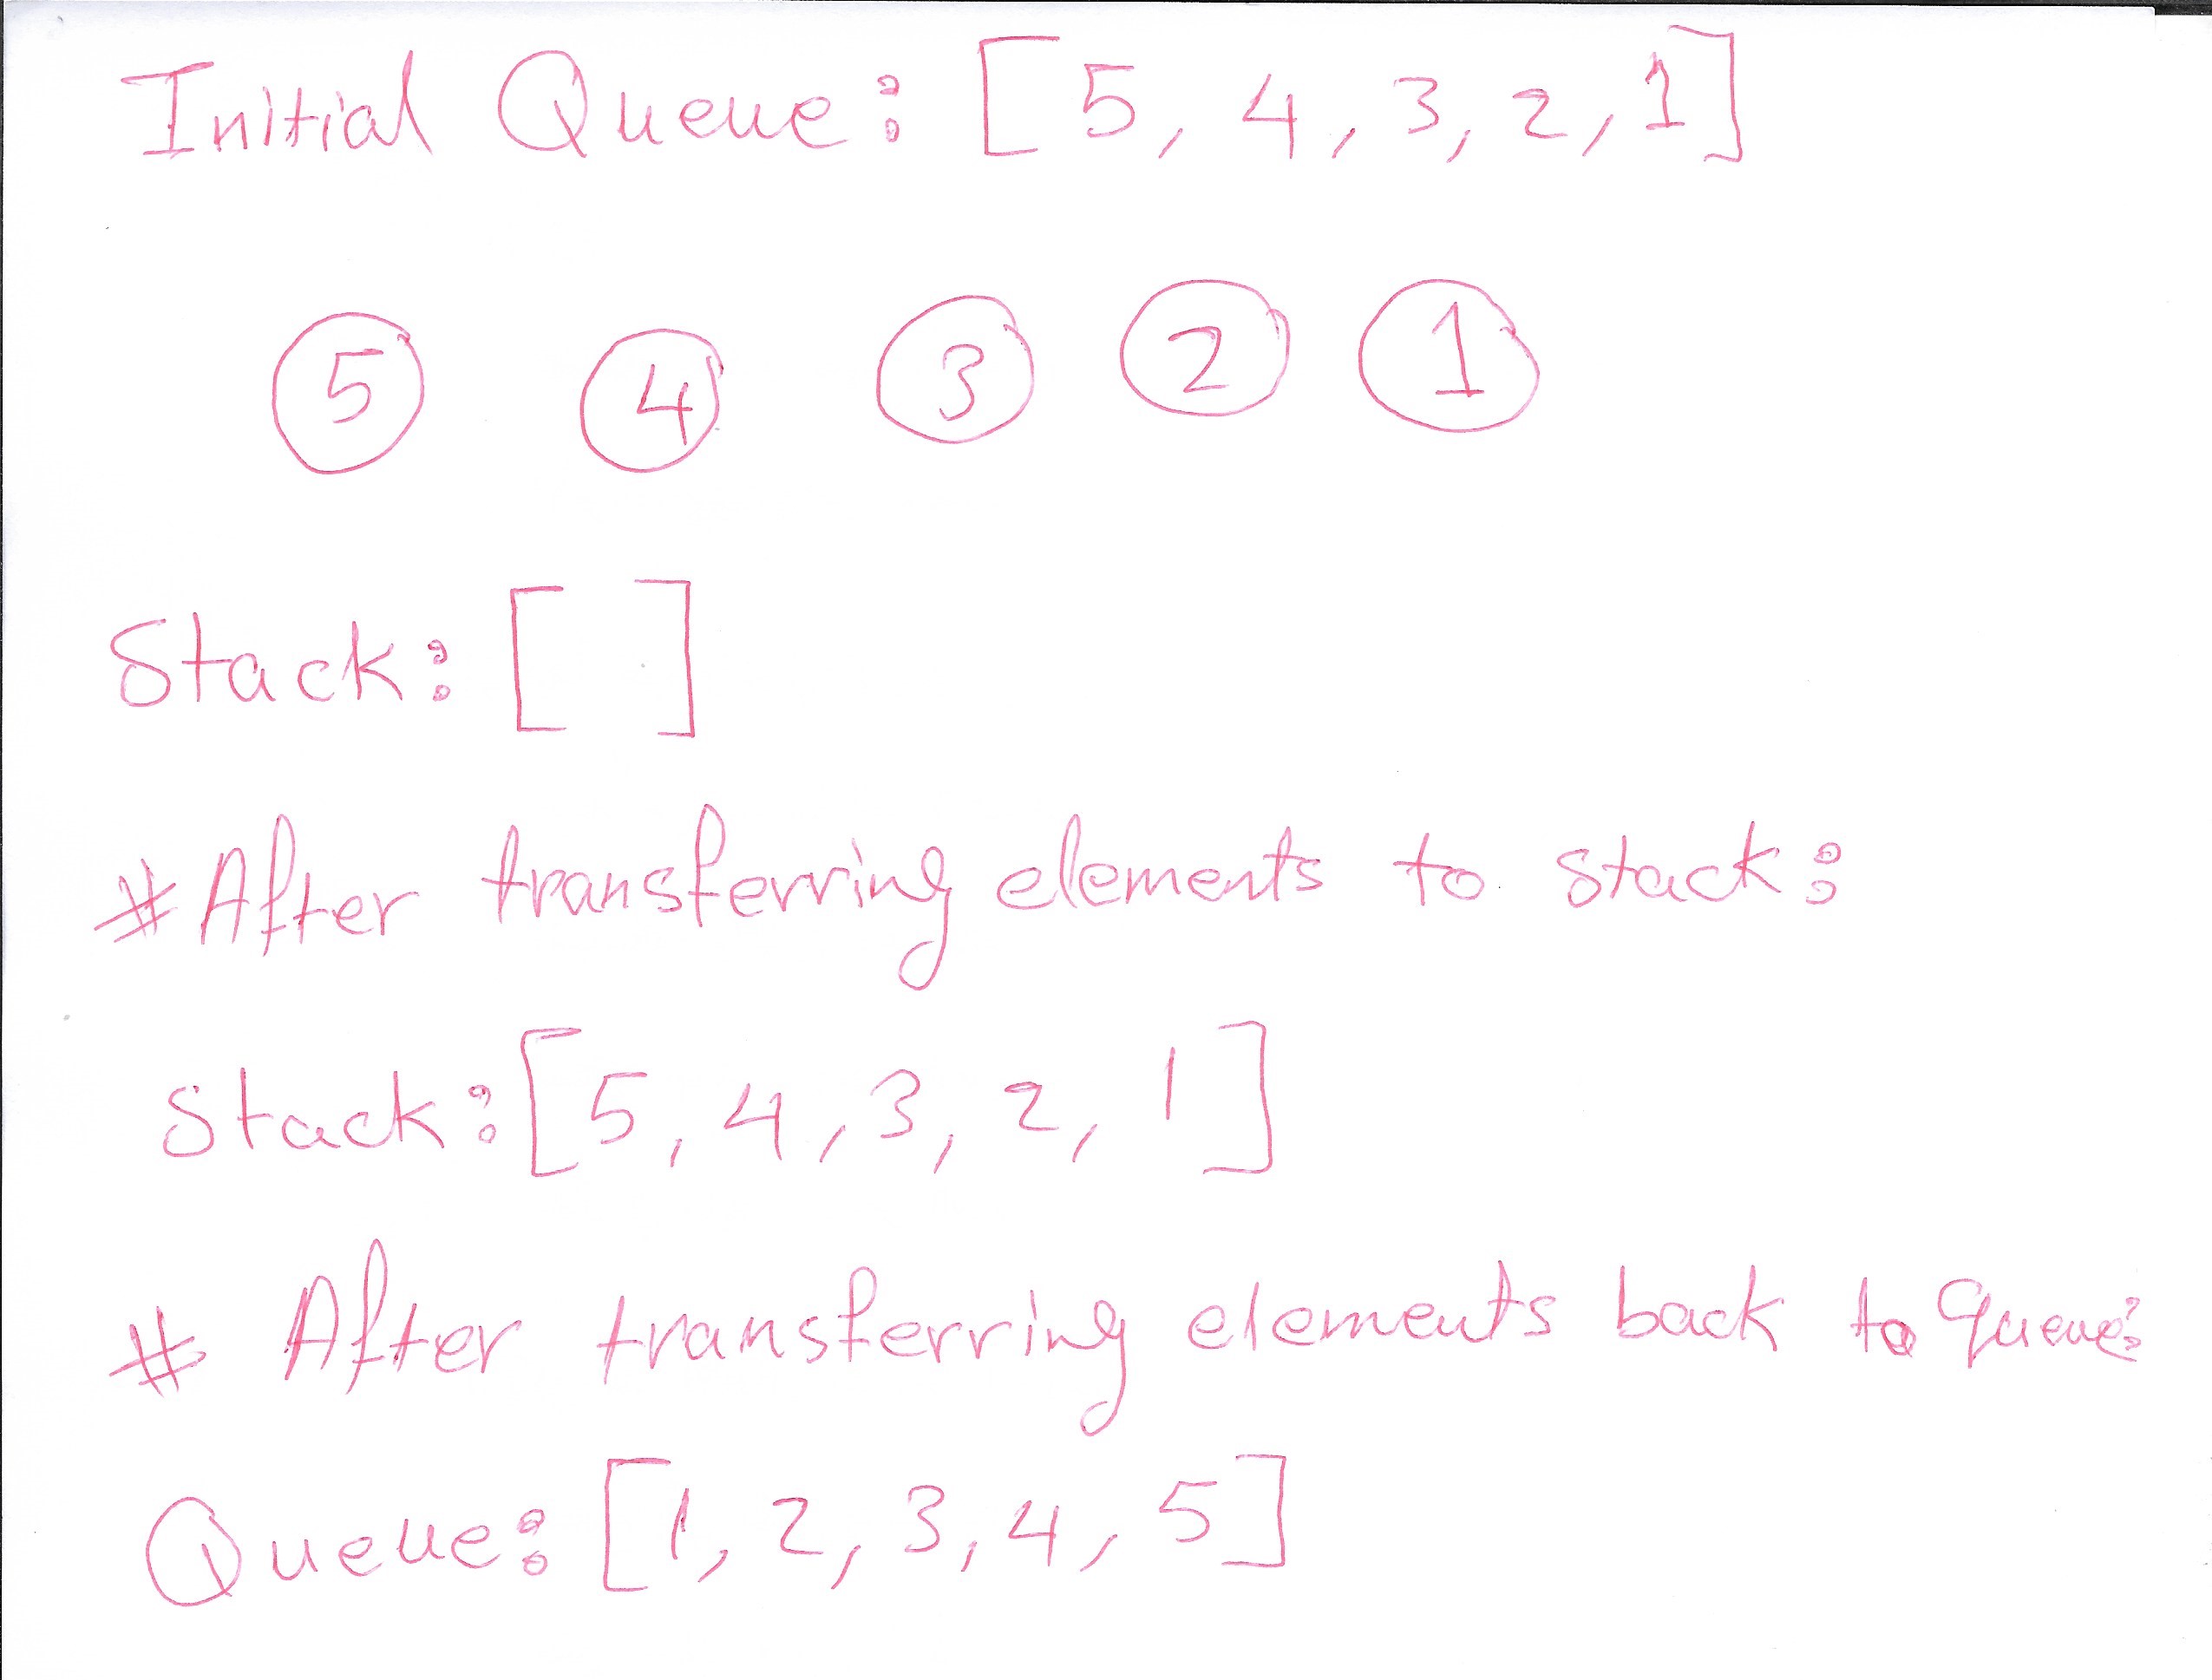 Initial Queue: [5, 4, 3, 2, 1]
5 4 3 2 1
Stack: [ ]
# After transferring elements to stack:
Stack: [5, 4, 3, 2, 1]
# After transferring elements back to queue:
Queue: [1, 2, 3, 4, 5]